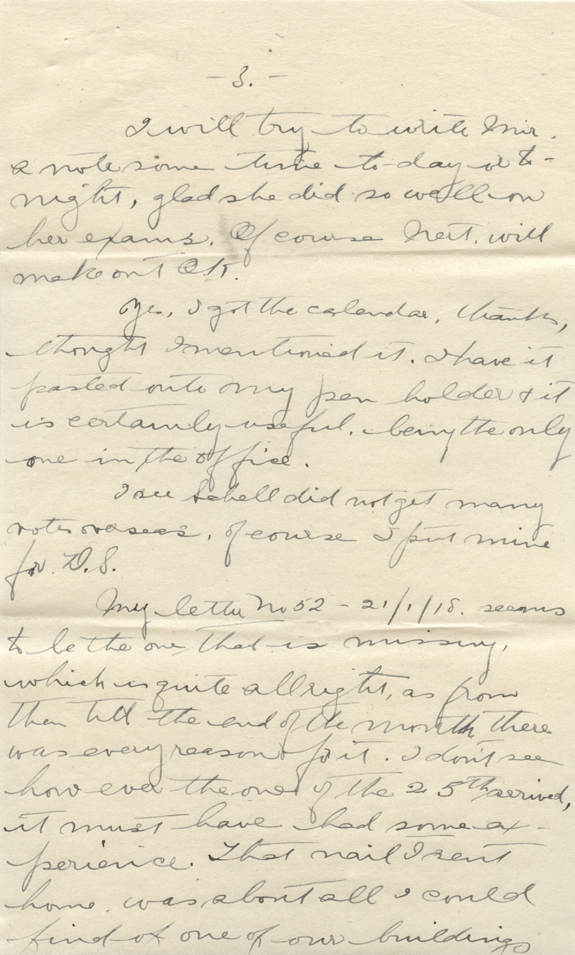 - 3. -
I will try to write Mir.
a note some time to-day or to-
night, glad she did so well on
her exams. Of course Nert. will
make out OK.
Yes, I got the calendar, thanks,
thought I mentioned it. I have it
pasted onto my pen holder & it
is certainly useful. being the only
one in the office.
I see Schell did not get many
votes overseas, of course I put mine
for D.S.
My letter No 52 - 21/1/18. seems
to be the one that is missing,
which is quite all right, as from
then till the end of the month there
was every reason for it. I don't see
how ever the one of the 25th arrived,
it must have had some ex-
perience. That nail I sent
home. was about all I could
find of one of our buildings